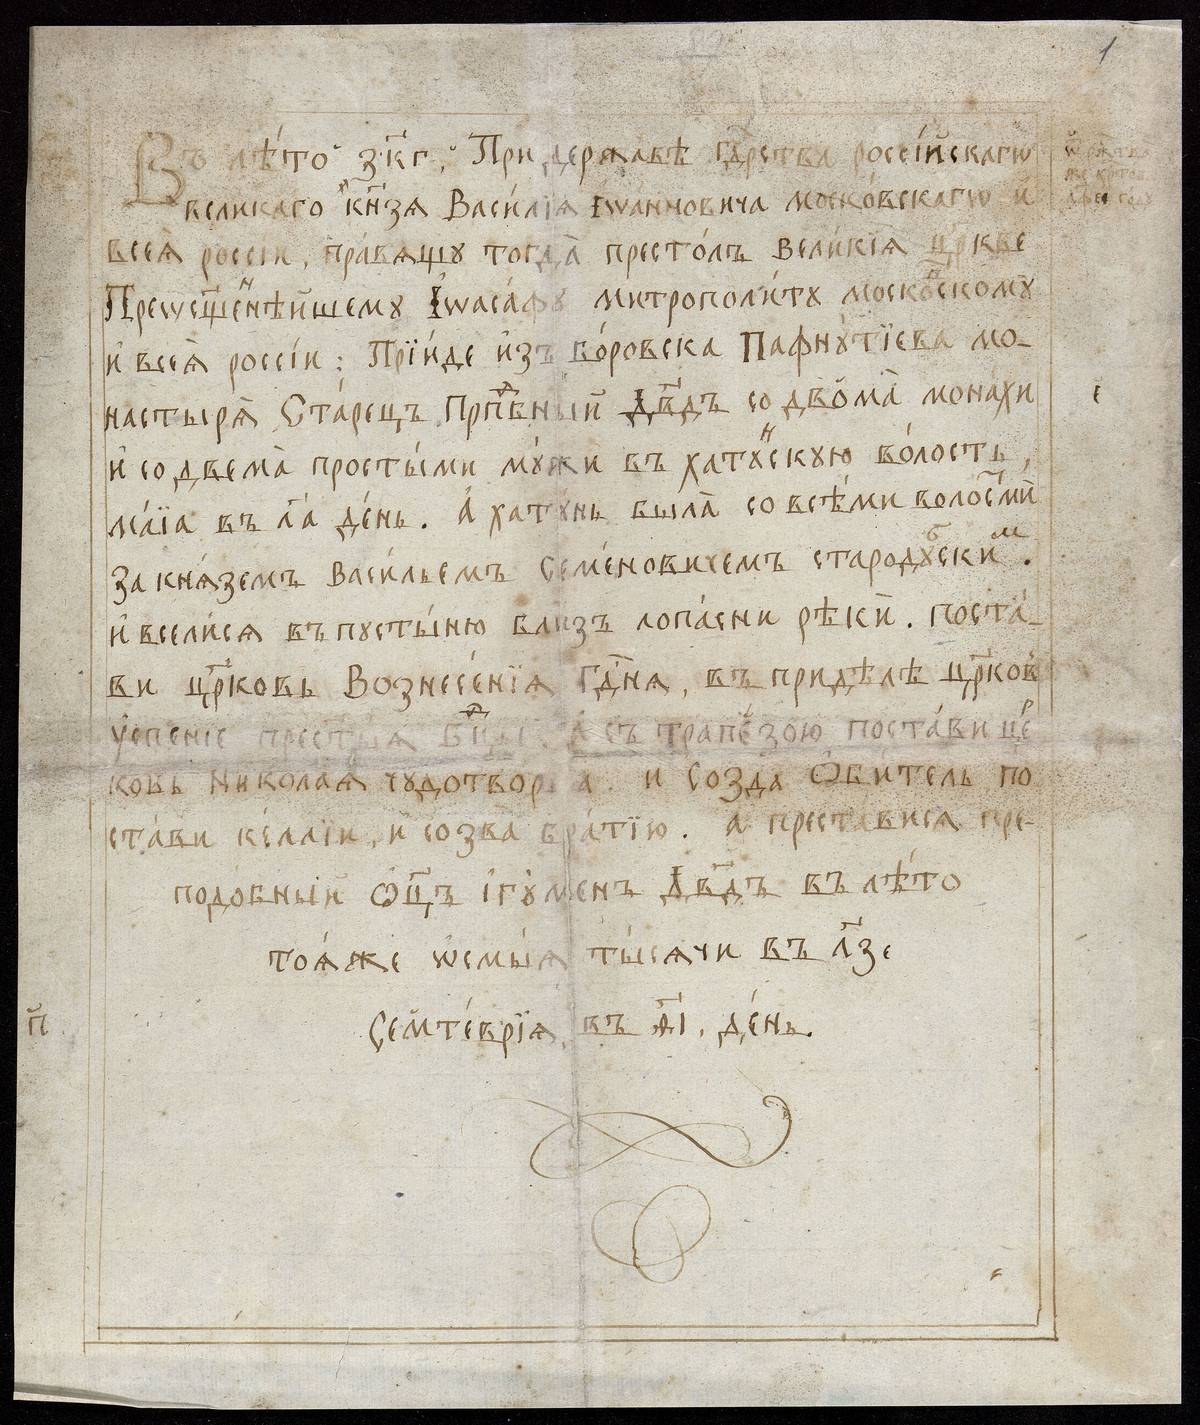 1
Въ лѣто ҂зк҃г, При державѣ гд҃рства россійскагѡ
великаго кн҃зя Василїя Іѡанновича московскагѡ и
всея россіи, правящу тогда престолъ великїя цр҃кве
Преѡсщ҃еннѣйшему Іѡасафу митрополиту московскому
и всея россіи: Прїиде изъ боровска Пафнутїева мо-
настыря Старецъ Прп҃дбный Дв҃дъ со двома монахи
и со двема простыми мужи въ хатунскую волость,
маїа въ л҃а день. А хатунь была со всѣми волос҃ми
за княземъ Васильемъ Семеновичемъ стародубским.
и вселися въ пустыню близъ лопасни рѣки. поста-
ви цр҃ковь Вознесенїя Гд҃ня, въ придѣлѣ цр҃ковь
успенїе прес҃тыя Бц҃ы. А съ трапезою постави цер
ковь Николая чудотворца. и созда Обитель по
стави келлїи, и созва братїю. а преставися пре-
подобный Ѻц҃ъ ігуменъ Дв҃дъ въ лѣто
тояже ѡсмыя тысячи въ л҃зе
Семтеврїя въ ѳ҃і, день.